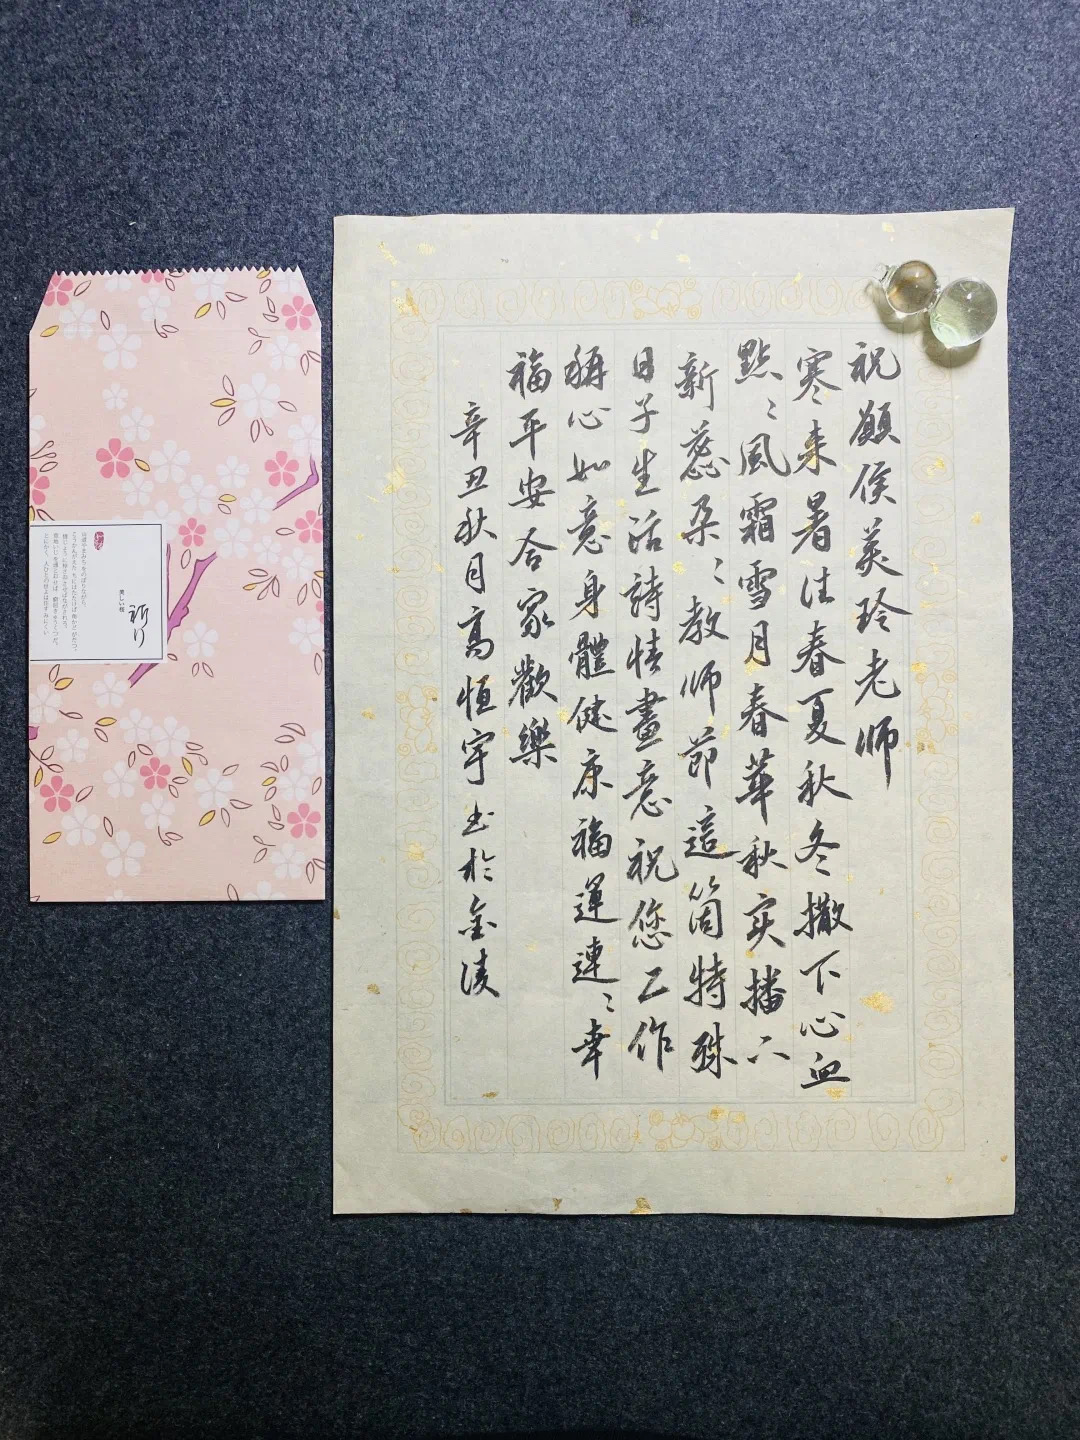 祝願侯美玲老师
寒来暑往春夏秋冬撒下心血
點〻風霜雪月春華秋实播六
新蕊朵〻教师節這箇特殊
日子生活詩情畫意祝您工作
稱心如意身體健康福運連〻幸
福平安合家歡樂
辛丑秋月高恒宇书於金陵
美しい桜
祈り